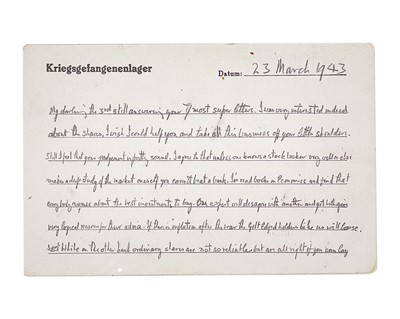 Kriegsgefangenenlager
Datum: 23 March 1943
My darling the 3rd still answering your 7 most super letters. I am very interested indeed
about the shares, I wish I could help you and take all this business off your little shoulders.
Still I feel that your judgement is pretty sound. I agree that unless one knows a stock broker very well or else
makes a deep study of the market oneself you cannot beat a bank. I've read books on Economics and find that
everybody argues about the best investments to buy. One expert will disagree with another and yet both give
very logical reasons for their advice. If there is inflation after the war the Gilt Edged holders like me will lose.
While on the other hand ordinary shares are not so reliable but are all right if you can buy